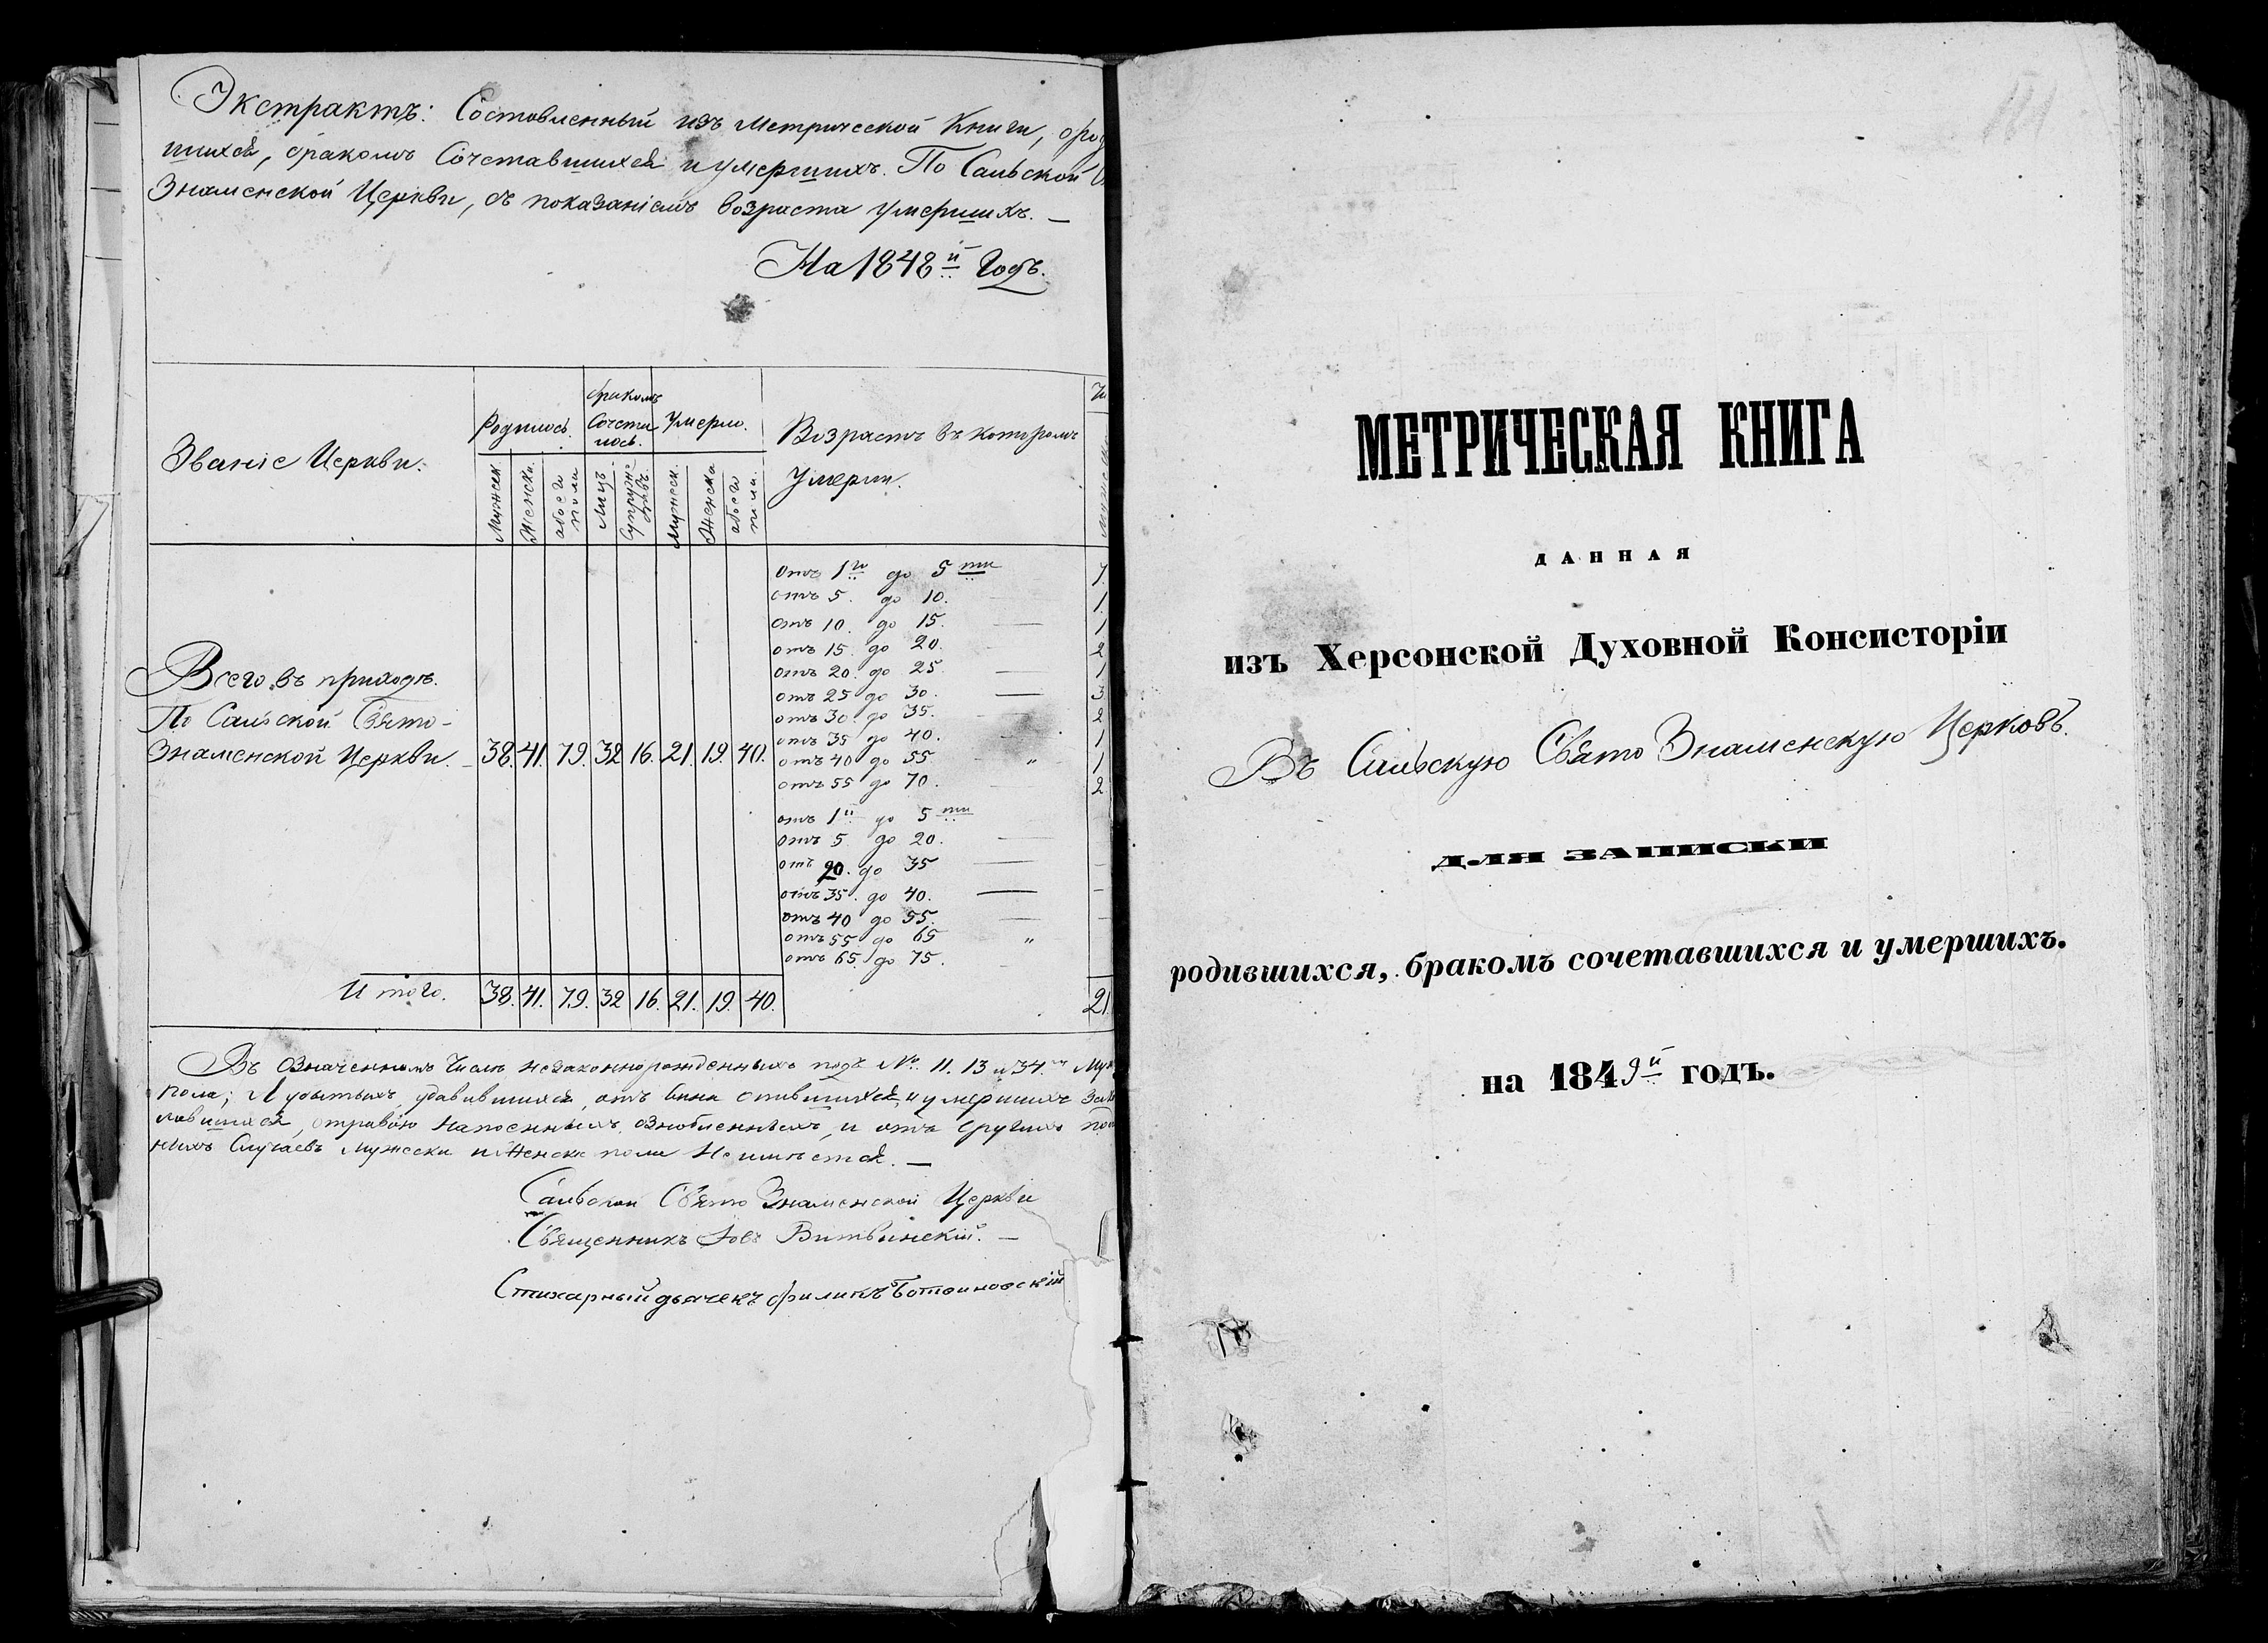 Экстрактъ: Составленный изъ Метрической Книги, о род
шихся, бракомъ Сочетавшихся и умершихъ. По Сальской
Знаменской Церкви, съ показаніемъ возраста умершихъ. —
На 1848й Годъ.
Званіе Церкви.
Родилось.
бракомъ Сочета лось.
Умерло.
Возрастъ въ которомъ
Умерли.
Мужеск
Женска.
обоего пола
Лицъ
Супруже ствъ.
Мужеск.
Женска.
обоего пола.
Всего въ приходѣ.
По Сальской Свято-
Знаменской Церкви. 38. 41. 79. 32 16. 21. 19. 40.
отъ 1го до 5ти 7.
отъ 5. до 10. 1.
отъ 10. до 15. — 1
отъ 15. до 20. 2
отъ 20. до 25. — 1
отъ 25 до 30. — 3
отъ 30. до 35. 2
отъ 35 до 40. 1
отъ 40 до 55 „ 1
отъ 55 до 70. 2
отъ 1го до 5ти
отъ 5 до 20. —
отъ 20. до 35 — -
отъ 35. до 40. — -
отъ 40 до 55. —
отъ 55 до 65 „
отъ 65. до 75.
Итого. 38. 41. 79. 32 16. 21. 19. 40. 21.
Въ Означенномъ Числѣ незаконнорожденныхъ подъ № 11. 13 и 34.
пола; А убитыхъ, удавившихся, отъ вина опившихся, и умершихъ
лившихся, отравою напоенныхъ, ознобленныхъ, и отъ другихъ
ныхъ Случаевъ мужеска и Женска пола Не имѣется. —
Сальской Свято Знаменской Церкви
Священникъ Іовъ Витвинскій. —
Стихарный дьячекъ Филипъ Ботвиновскій
МЕТРИЧЕСКАЯ КНИГА
ДАННАЯ
изъ Херсонской Духовной Консисторіи
Въ Сальскую Свято Знаменскую Церковь.
ДЛЯ ЗАПИСКИ
родившихся, бракомъ сочетавшихся и умершихъ.
на 1849й годъ.